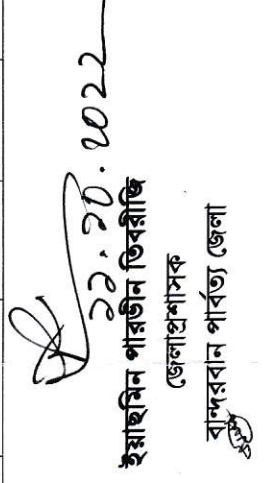 ২২.১০.২০২২
ইয়াছমিন পারভীন তিবরীজি
জেলাপ্রশাসক
বান্দরবান পার্বত্য জেলা